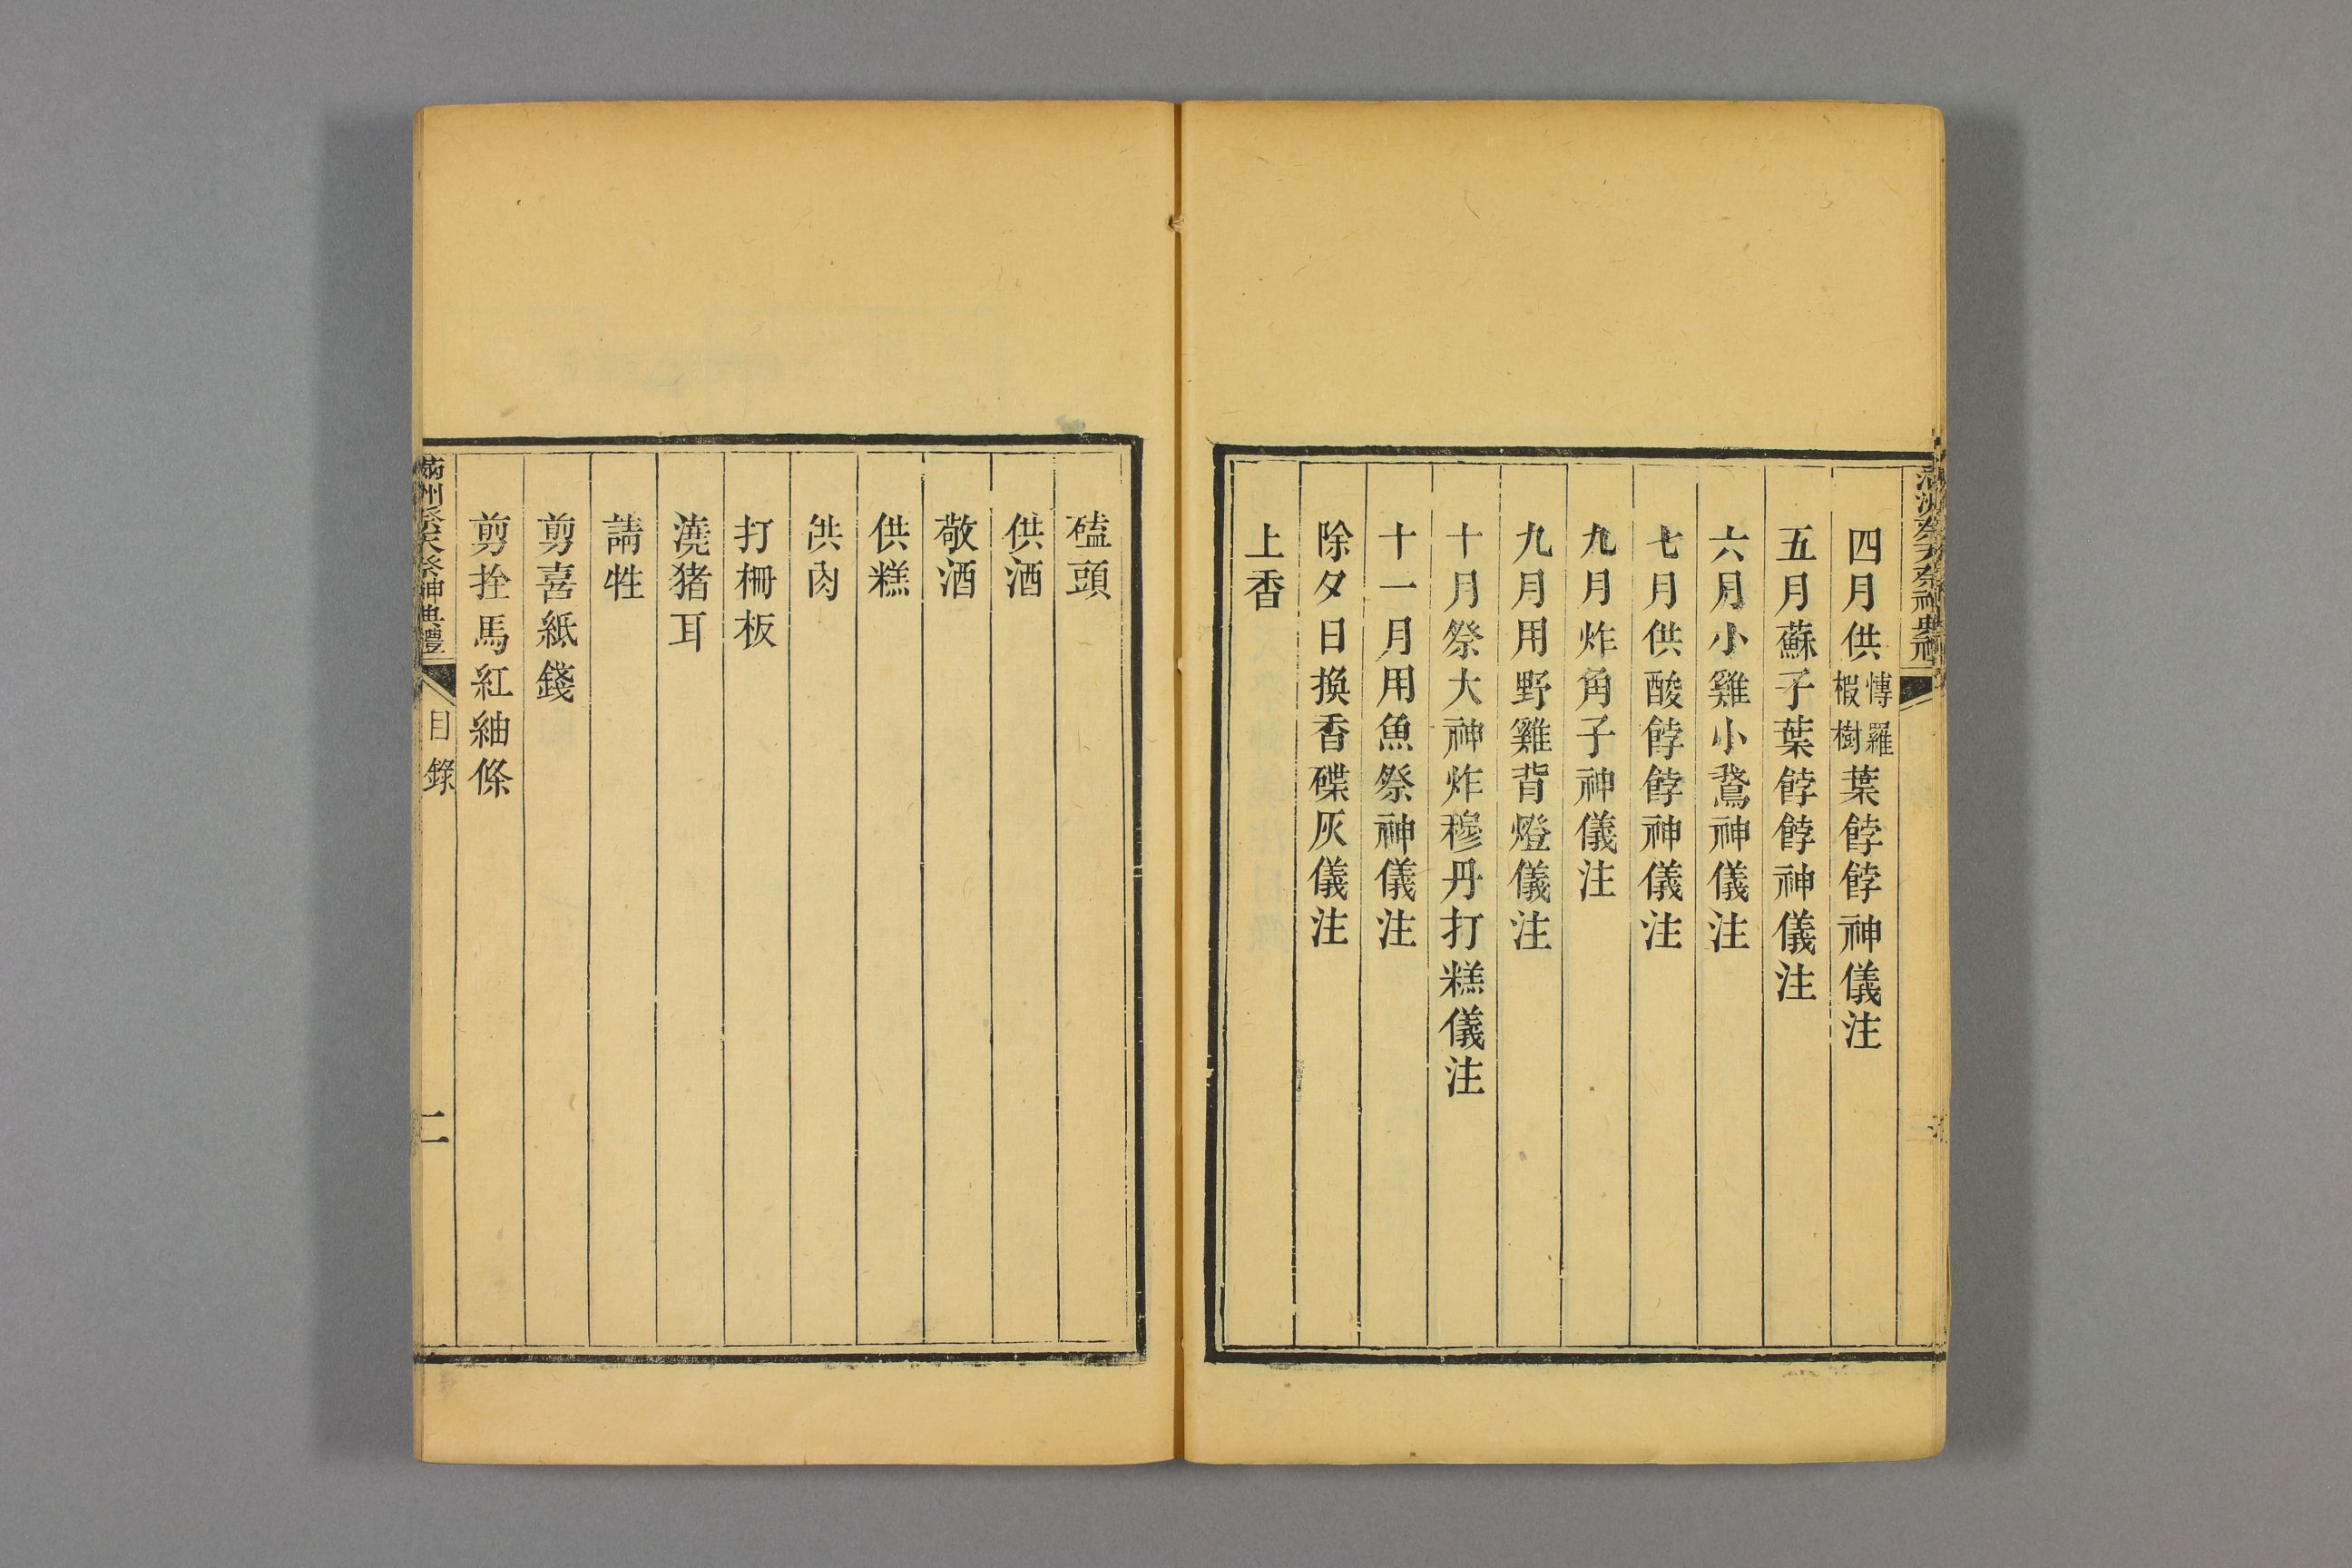 四月供愽羅椵樹葉餑餑神儀注
五月蘇子葉餑餑神儀注
六月小雞小鵞神儀注
七月供酸餑餑神儀注
九月炸角子神儀注
九月用野雞背燈儀注
十月祭大神炸穆丹打糕儀注
十一月用魚祭神儀注
除夕日換香碟灰儀注
上香
磕頭
供酒
敬酒
供糕
供肉
打柵板
澆猪耳
請牲
剪喜紙錢
剪拴馬紅紬條
滿州祭天祭神典禮
目錄
二